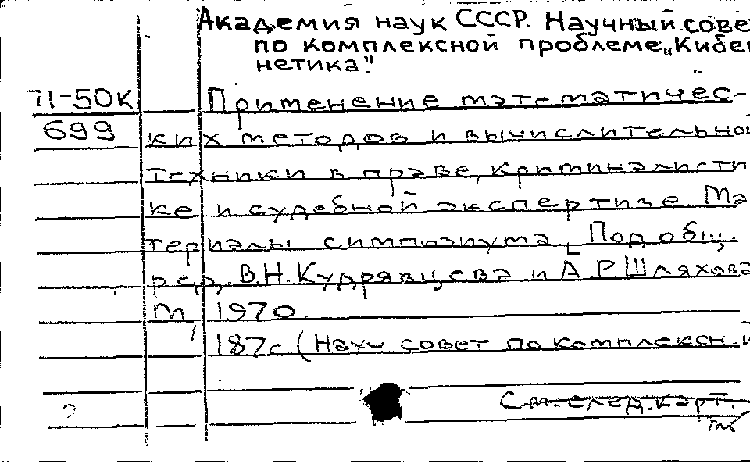 Академия наук СССР. Научный сове
по комплексной проблеме „Кибер
нетика."
П-50к Применение математичес-
699 ких методов и вычислительной
техники в праве, криминалисти
ке и судебной экспертизе. Ма
териалы симпозиума. [Под общ.
ред. В.Н. Кудрявцева и А.Р. Шляхова
М, 1970
187с (Науч совет по комплексн.
См. след. карт.